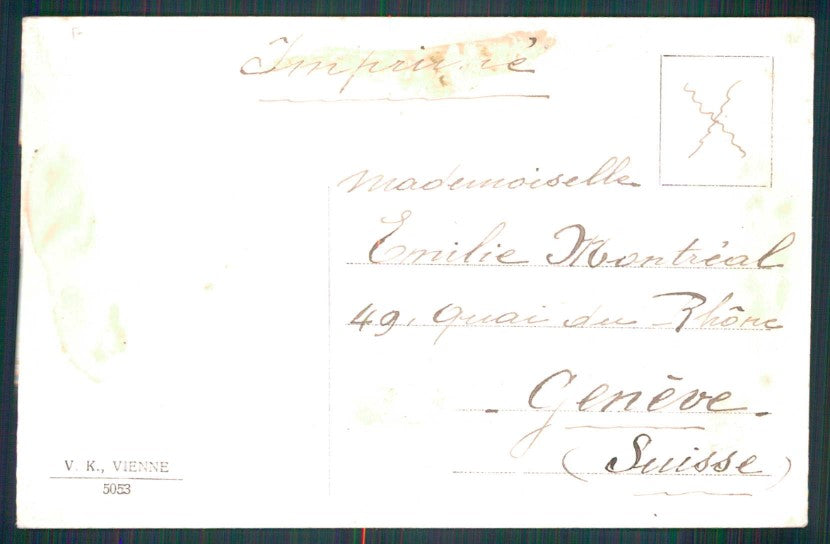 Imprimé
Mademoiselle
Emilie Montréal
49, Quai du Rhône
- Genève -
(Suisse)
V. K., VIENNE
5053